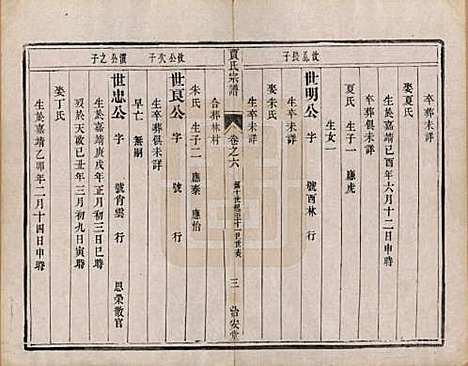 卒葬未詳
娶夏氏
生於嘉靖己酉年六月十二日申時
卒葬俱未詳
夏氏 生子一 應虎
生女一
攸長子
世明公 字 號西林 行
生卒未詳
娶朱氏
生卒葬未詳
賈氏宗譜
卷之六
第十世至十一世世表
三
治安堂
合葬林村
朱氏 生子二 應泰 應怡
攸公次子
世良公 字 號 行
生卒葬俱未詳
早亡 無嗣
公之子
世忠公 字 號肖雲 行 恩榮散官
生於嘉靖庚戌年正月初三日巳時
卒於天啟己丑年三月初九日寅時
娶丁氏
生於嘉靖乙卯年二月十四日申時